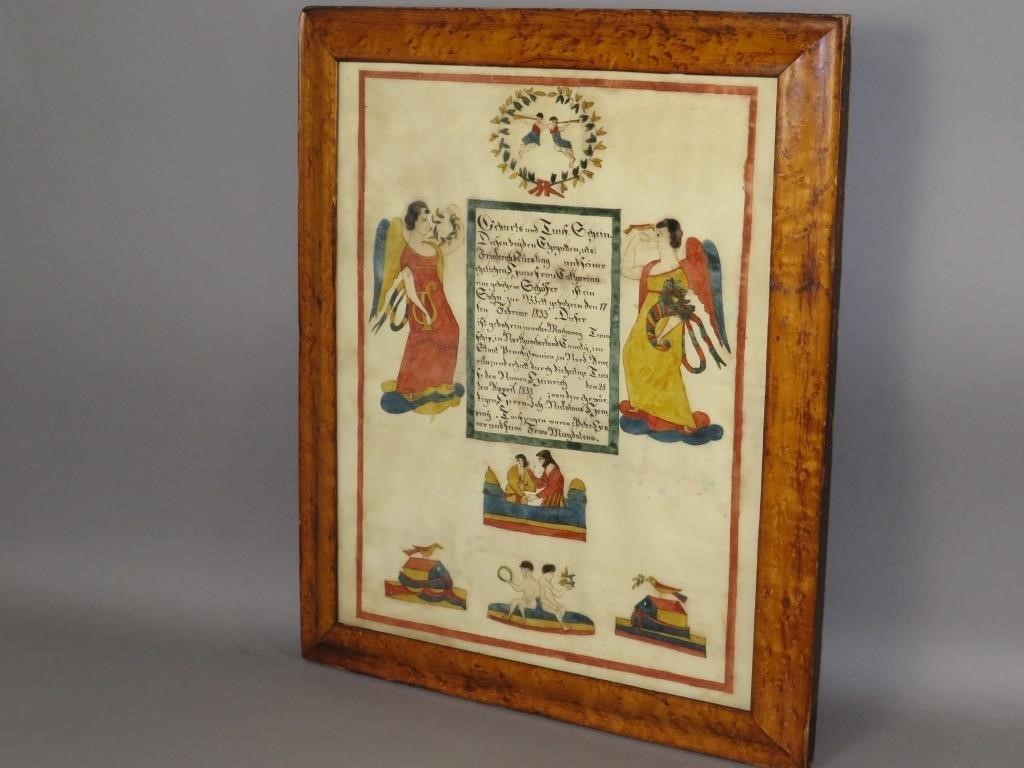 Geburts und Tauf Schein.
Diesen beyden Ehegatten, als:
Friederich Kiesling und seiner
ehelichen Haus Frau Catharina
eine gebohrne Schäfer ist ein
Sohn zur Welt gebohren den 17
ten Februar 1833. Dieser
ist gebohren in Taun
schip, in Northumberland Caunty, im
Staat Pennsylvanien, in Nord Ame
rica und erhielt durch die heilige Tau
fe den Namen Heinrich den 28
den April 1833 von dem ehrwür
digen Herrn Joh. Nicolaus Hem
ping. Taufzeugen waren Peter
ner und seine Frau Magdalena.